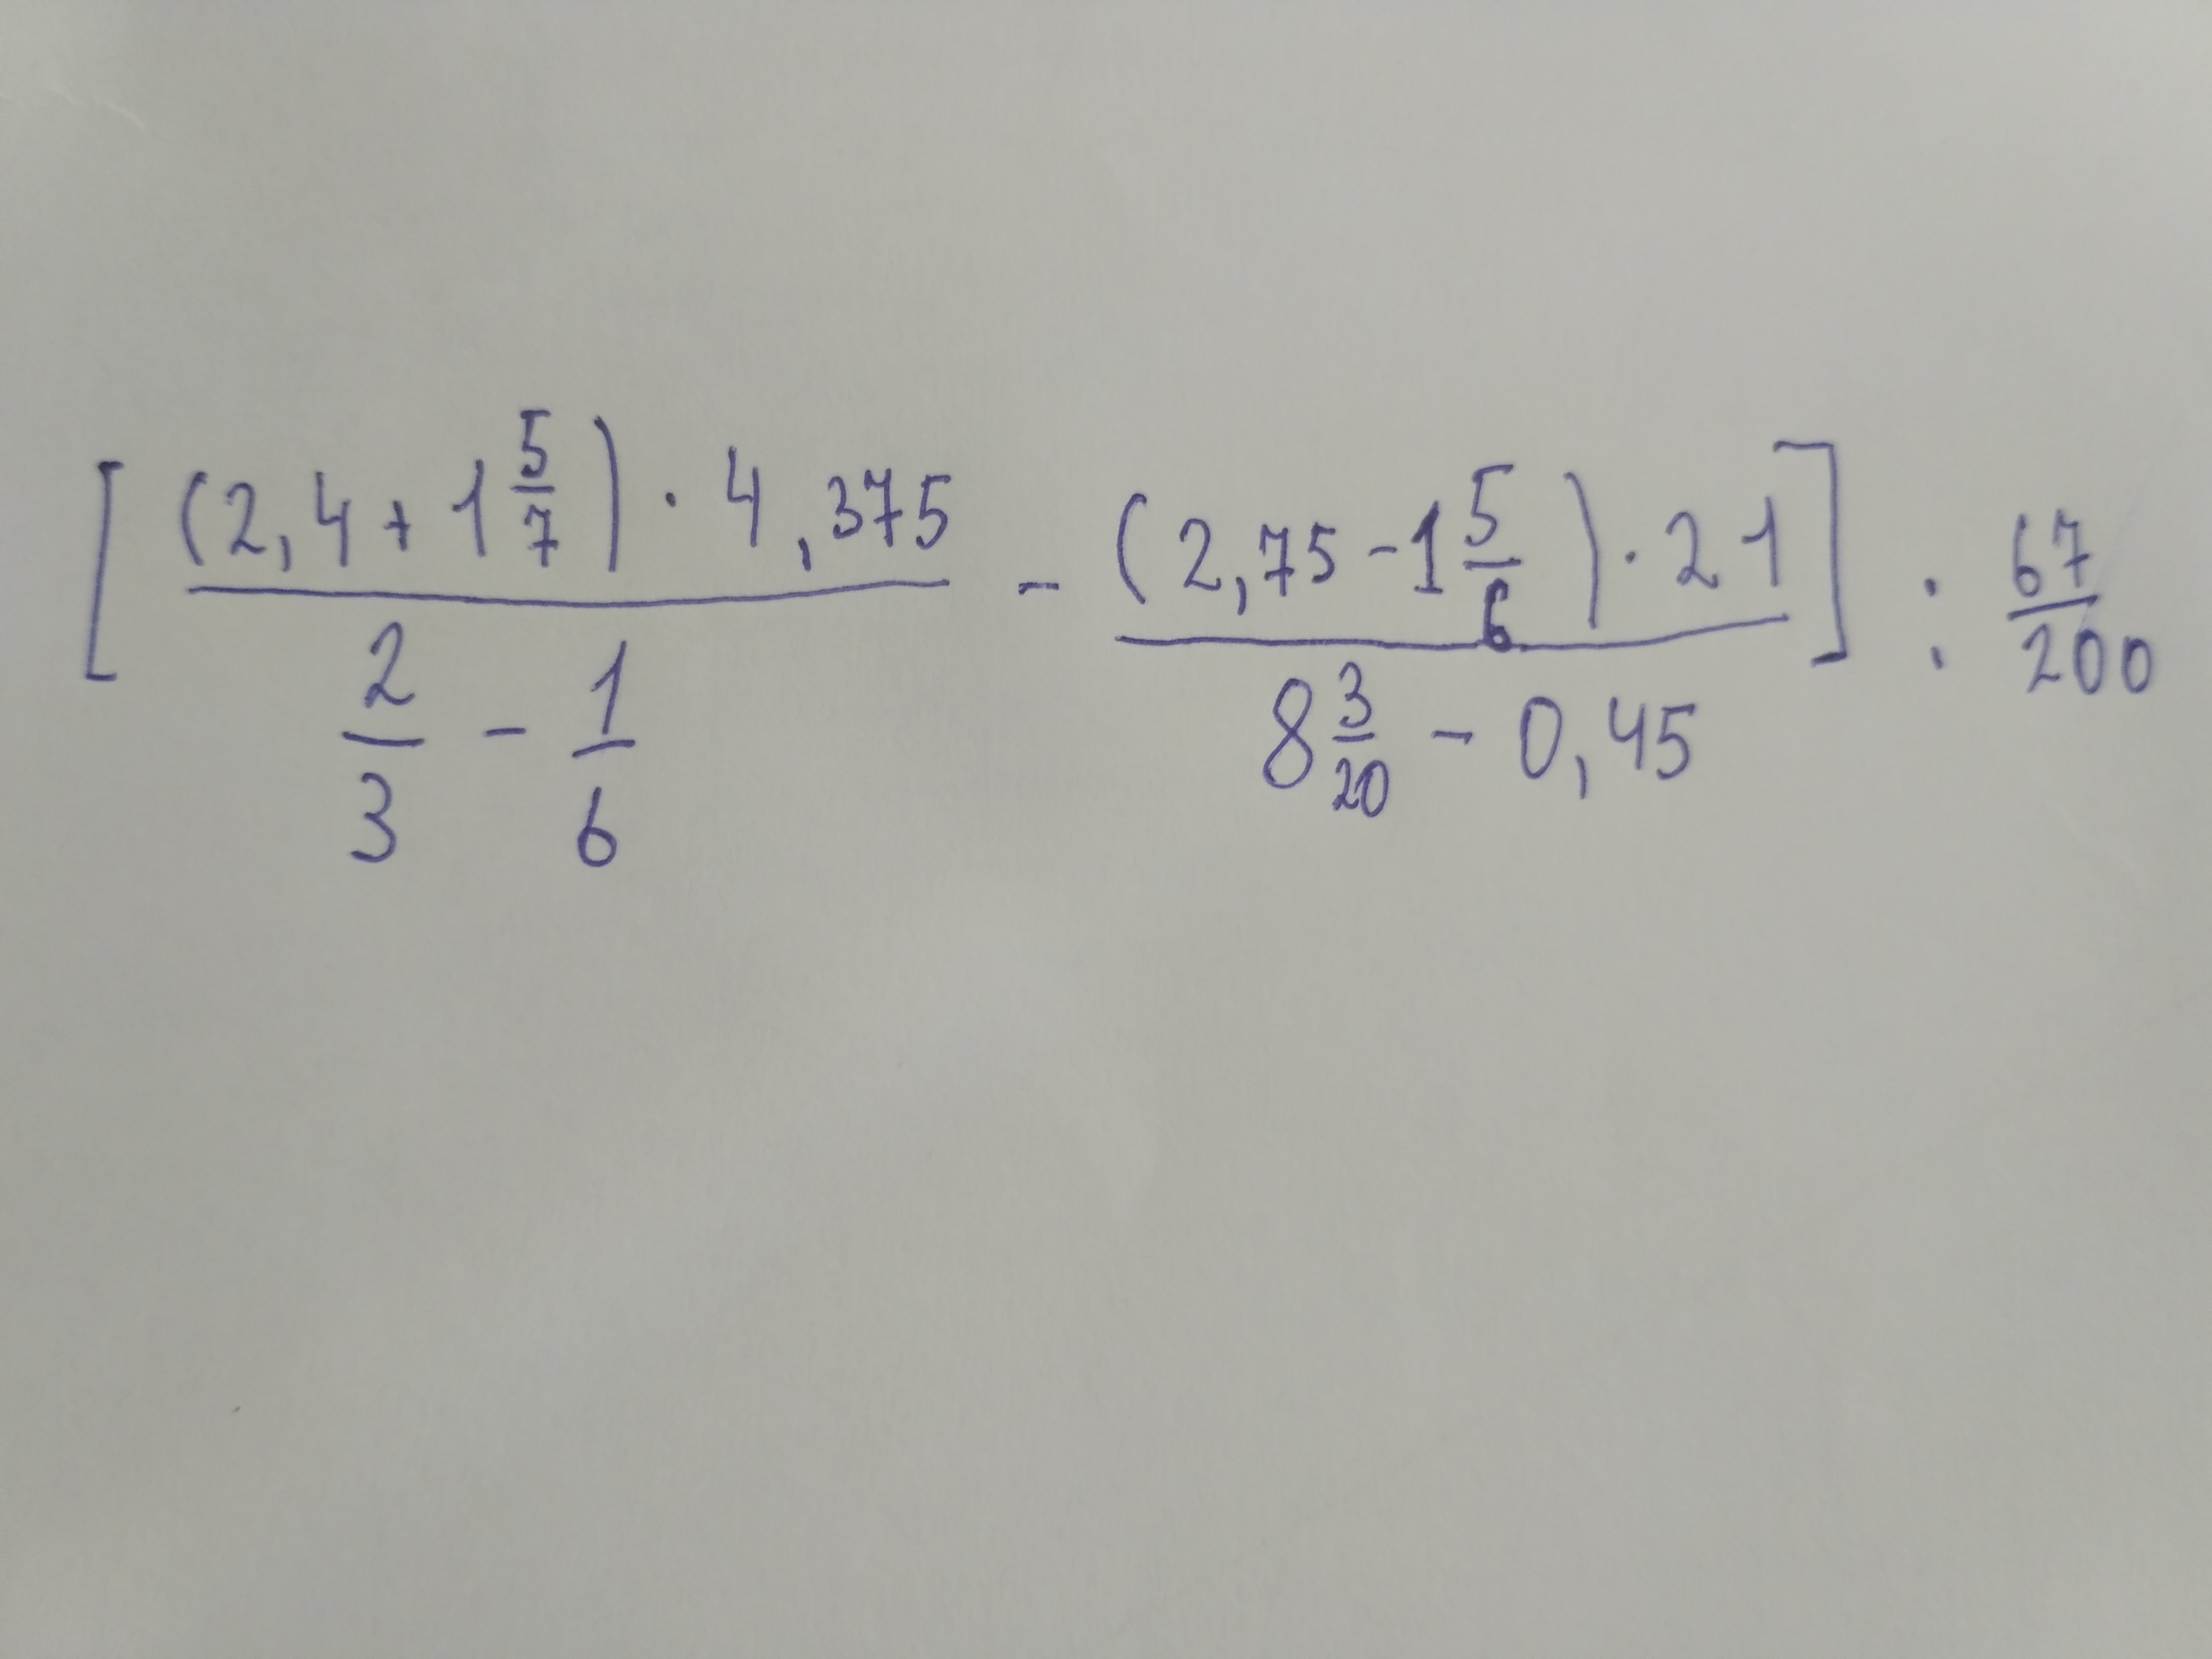 [ (2,4 + 1 5/7) · 4,375 / (2/3 - 1/6) - (2,75 - 1 5/6) · 21 / (8 3/20 - 0,45) ] : 67/200